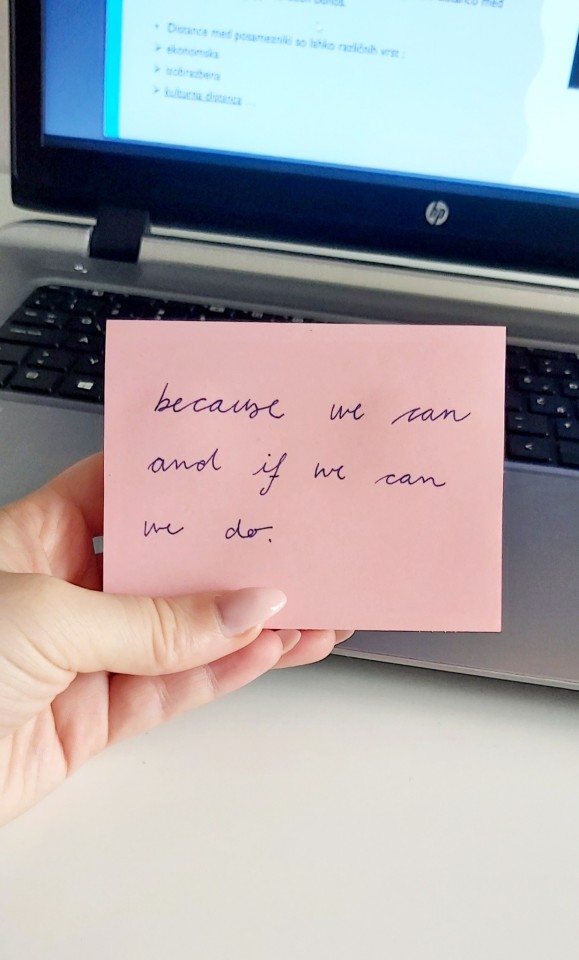 • Distance med posamezniki so lahko različnih vrst :
➢ ekonomska
➢ izobrazbena
➢ kulturna distanca ...
hp
because we can
and if we can
we do.